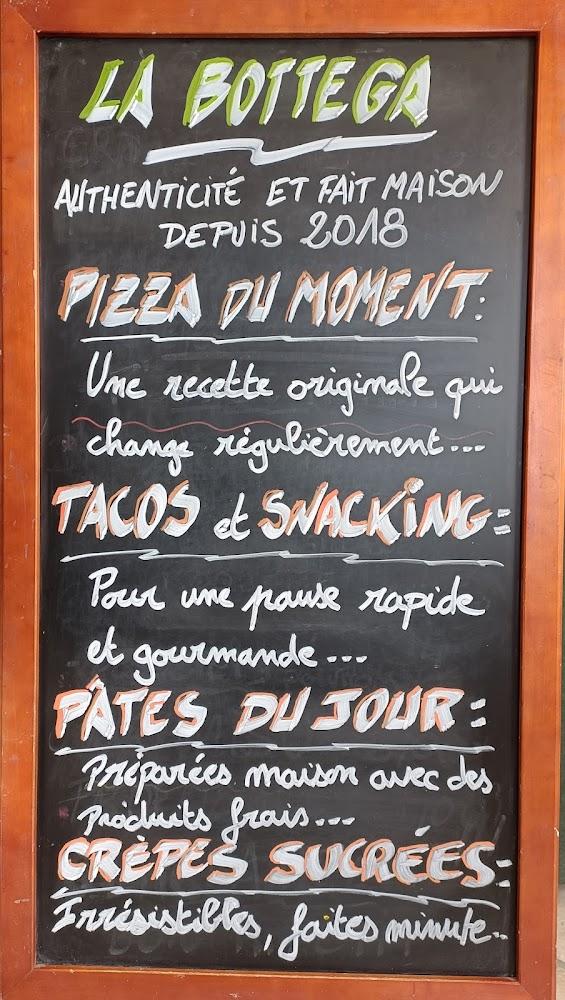 LA BOTTEGA
AUTHENTICITÉ ET FAIT MAISON
DEPUIS 2018
PIZZA DU MOMENT:
Une recette originale qui
change régulièrement...
TACOS et SNACKING:
Pour une pause rapide
et gourmande...
PÂTES DU JOUR:
Préparées maison avec des
produits frais...
CRÈPES SUCRÉES:
Irrésistibles, faites minute..